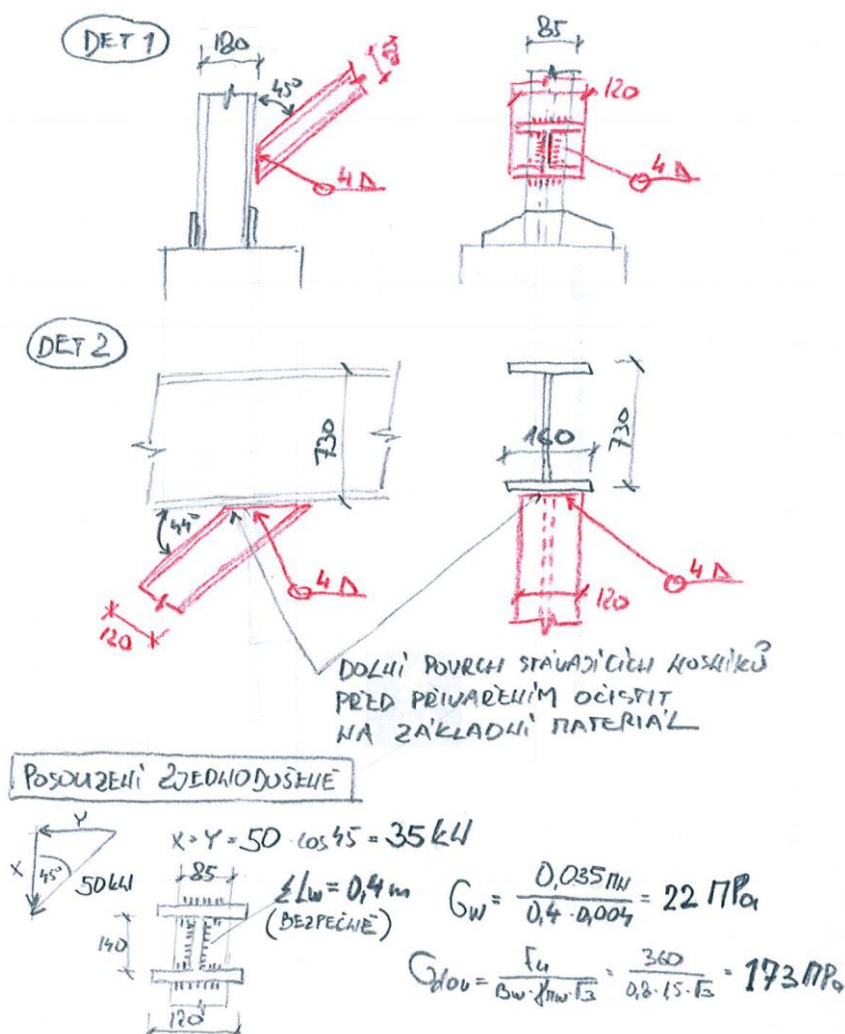 DET 1
180
45°
120
4
85
120
4
DET 2
730
44°
120
4
160
730
120
4
DOLNÍ POVRCH STÁVAJÍCÍCH NOSNÍKŮ
PŘED PŘIVAŘENÍM OČISTIT
NA ZÁKLADNÍ MATERIÁL
POSOUZENÍ ZJEDNODUŠENĚ
Y
X
45°
50 kN
X=Y=50·cos45=35 kN
85
140
120
ΣLw=0,4 m
(BEZPEČNĚ)
Gw = 0,035 MN / 0,4·0,004 = 22 MPa
Gdov = fu / βw·γMw·√3 = 360 / 0,8·1,5·√3 = 173 MPa